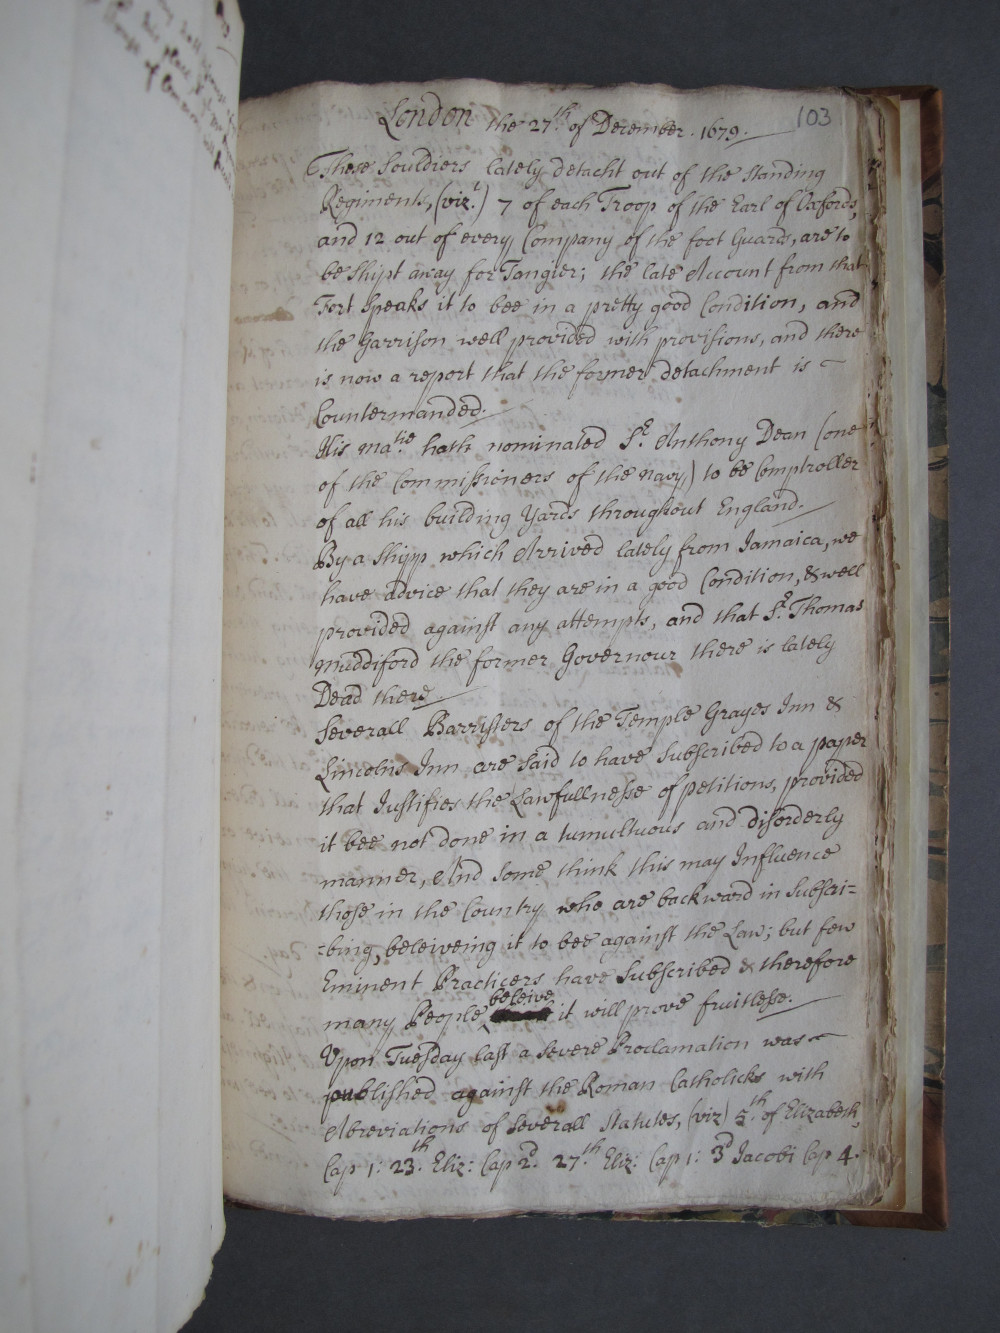 103
London the 27th. of December. 1679.
Those Souldiers lately detacht out of the Standing
Regiments, (vizt.) 7 of each Troop of the Earl of Oxfords,
and 12 out of every Company of the foot Guards, are to
be Shipt away for Tangier; the late Account from that
Fort Speaks it to bee in a pretty good Condition, and
the Garrison well provided with provisions, and there
is now a report that the former detachment is
Countermanded.
His Matie. hath nominated Sr. Anthony Dean (one
of the Commissioners of the Navy) to be Comptroller
of all his building Yards throughout England.
By a Shipp which Arrived lately from Jamaica, we
have advice that they are in a good Condition, & well
provided against any attempts, and that Sr. Thomas
Muddiford the former Governour there is lately
Dead there
Severall Barristers of the Temple Grayes Inn &
Lincolns Inn are said to have Subscribed to a paper
that Justifies the Lawfullnesse of petitions, provided
it bee not done in a tumultuous and disorderly
manner, And some think this may Influence
those in the Country who are backward in Subscri=
=bing, beleiveing it to bee against the Law; but few
Eminent Practicers have Subscribed & therefore
many People beleive it will prove fruitlesse.
Upon Tuesday last a Severe Proclamation was
published against the Roman Catholicks with
Abreviations of Severall Statutes, (viz) 5th. of Elizabeth,
Cap 1: 23th. Eliz: Cap 2d. 27th. Eliz: Cap 1: 3d Jacobi Cap 4.